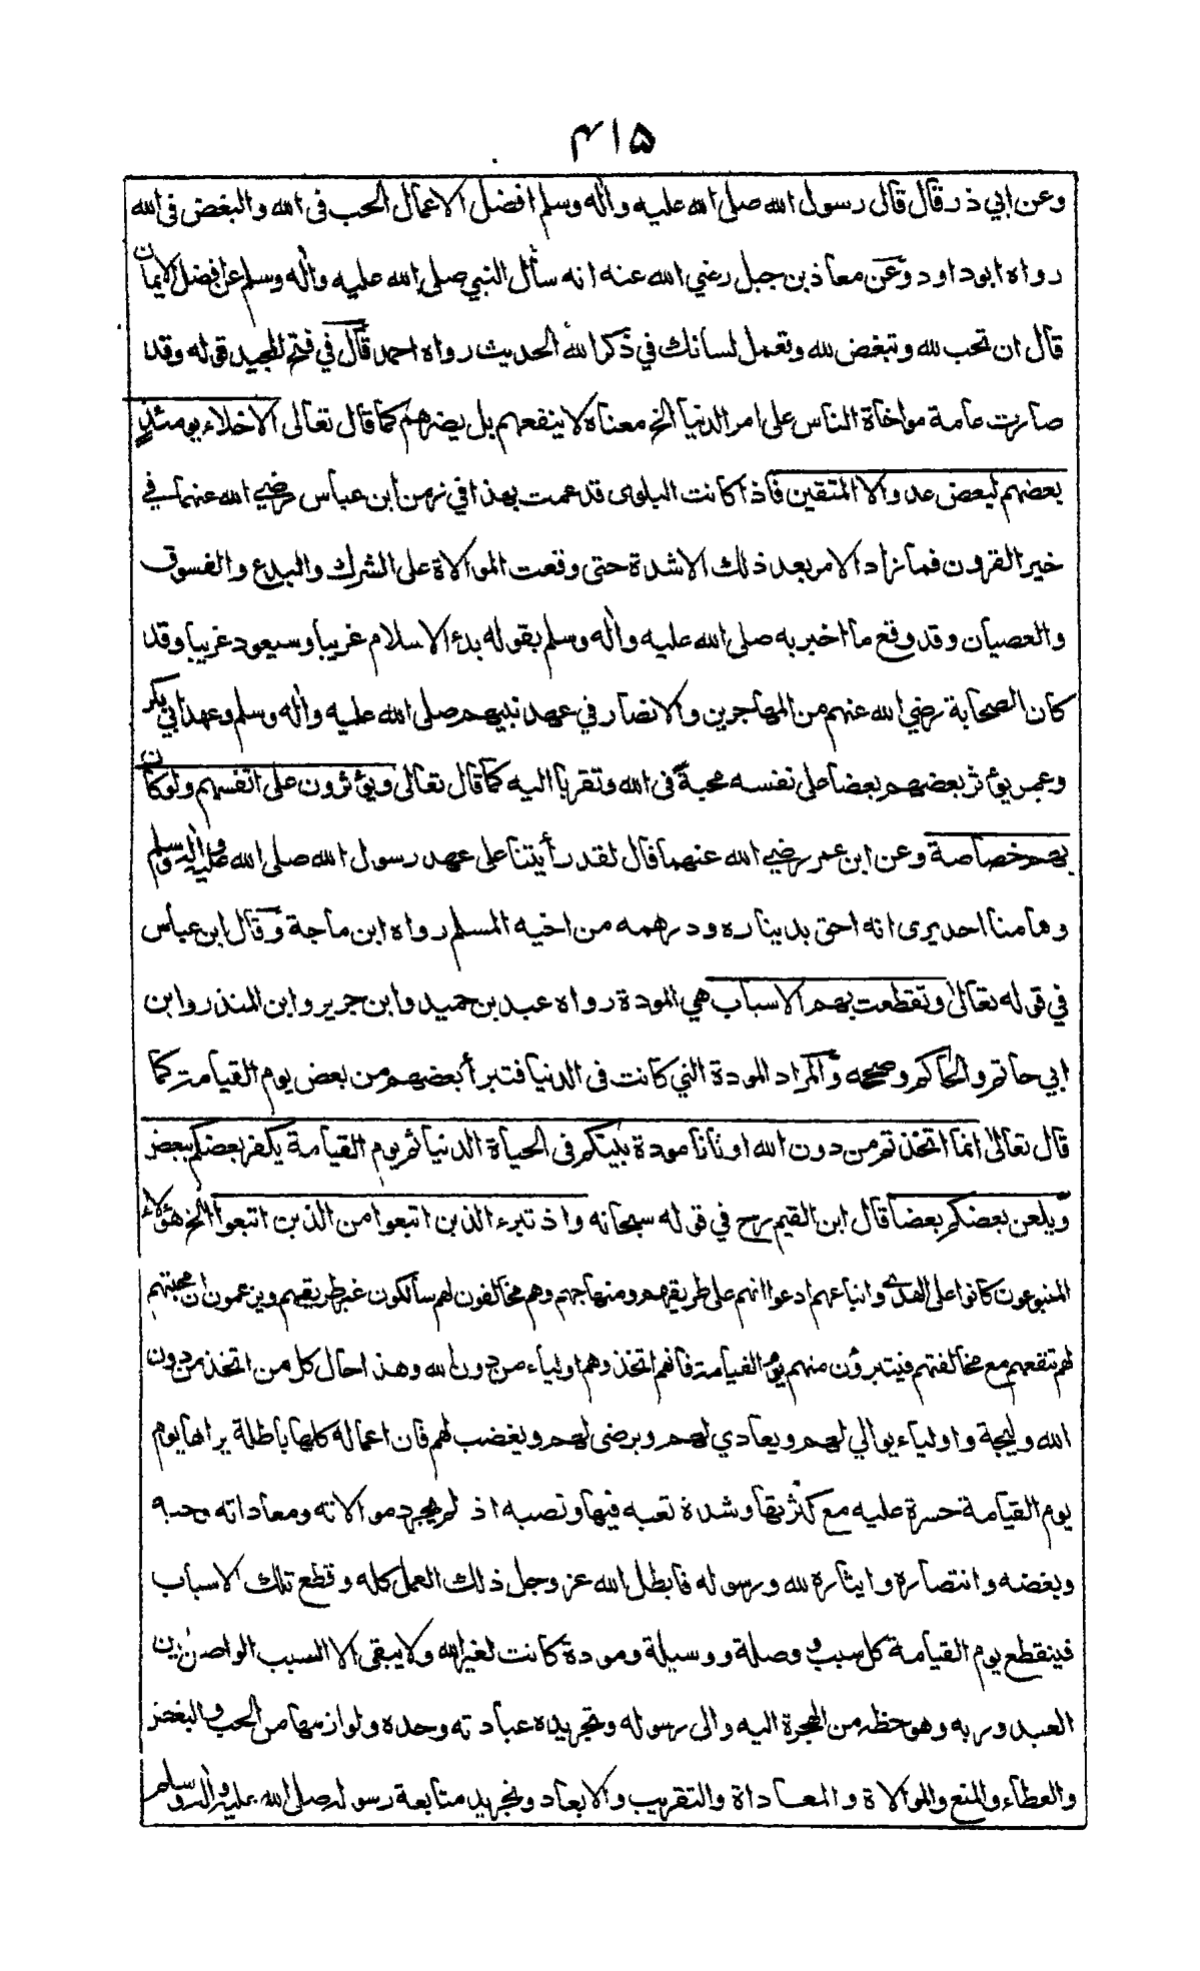 ۴۱۵
وعن ابي ذر قال قال رسول الله صلى الله عليه واله وسلم افضل الاعمال الحب فى الله والبغض فى الله
رواه ابوداود وعن معاذ بن جبل رضي الله عنه انه سأل النبي صلى الله عليه واله وسلم عن افضل الايمان
قال ان تحب لله وتبغض لله وتعمل لسانك في ذكر الله الحديث رواه احمد قال في فتح المجيد قوله وقد
صارت عامة مواخاة الناس على امر الدنيا الخ معناه لا ينفعهم بل يضرهم كما قال تعالى الاخلاء يومئذ
بعضهم لبعض عدو الا المتقين فاذا كانت البلوى قد عمت بهذا في زمن ابن عباس رضي الله عنهما في
خير القرون فما زاد الامر بعد ذلك الا شدة حتى وقعت الموالاة على الشرك والبدع والفسوق
والعصيان وقد وقع ما اخبر به صلى الله عليه واله وسلم بقوله بدء الاسلام غريبا وسيعود غريبا وقد
كان الصحابة رضي الله عنهم من المهاجرين والانصار في عهد نبيهم صلى الله عليه واله وسلم وعهد ابي بكر
وعمر يؤثر بعضهم بعضا على نفسه محبة فى الله وتقربا اليه كما قال تعالى ويؤثرون على انفسهم ولو كان
بهم خصاصة وعن ابن عمر رضي الله عنهما قال لقد رأيتنا على عهد رسول الله صلى الله عليه واله وسلم
وما منا احد يرى انه احق بديناره ودرهمه من اخيه المسلم رواه ابن ماجة وقال ابن عباس
في قوله تعالى وتقطعت بهم الاسباب هي المودة رواه عبد بن حميد وابن جرير وابن المنذر وابن
ابي حاتم والحاكم وصححه والمراد المودة التي كانت فى الدنيا فتبرأ بعضهم من بعض يوم القيامة كما
قال تعالى انما اتخذتم من دون الله اوثانا مودة بينكم فى الحياة الدنيا ثم يوم القيامة يكفر بعضكم ببعض
ويلعن بعضكم بعضا قال ابن القيم رح في قوله سبحانه واذ تبرء الذين اتبعوا من الذين اتبعوا الخ هؤلاء
المتبوعون كانوا على الهدى واتباعهم ادعوا انهم على طريقهم ومنهاجهم وهم مخالفون لهم سالكون غير طريقهم ويزعمون ان محبتهم
لهم تنفعهم مع مخالفتهم فيتبرؤن منهم يوم القيامة فانهم اتخذوهم اولياء من دون الله وهذا حال كل من اتخذ من دون
الله وليجة واولياء يوالي لهم ويعادي لهم ويرضى لهم ويغضب لهم فان اعماله كلها باطلة يراها يوم
يوم القيامة حسرة عليه مع كثرتها وشدة تعبه فيها ونصبه اذ لم يجرد موالاته ومعاداته وحبه
وبغضه وانتصاره وايثاره لله ورسوله فابطل الله عز وجل ذلك العمل كله وقطع تلك الاسباب
فينقطع يوم القيامة كل سبب ووصلة ووسيلة ومودة كانت لغير الله ولا يبقى الا السبب الواصل بين
العبد وربه وهو حظه من الهجرة اليه والى رسوله وتجريده عبادته وحده ولوازمها من الحب والبغض
والعطاء والمنع والموالاة والمعاداة والتقريب والابعاد وتجريد متابعة رسوله صلى الله عليه واله وسلم